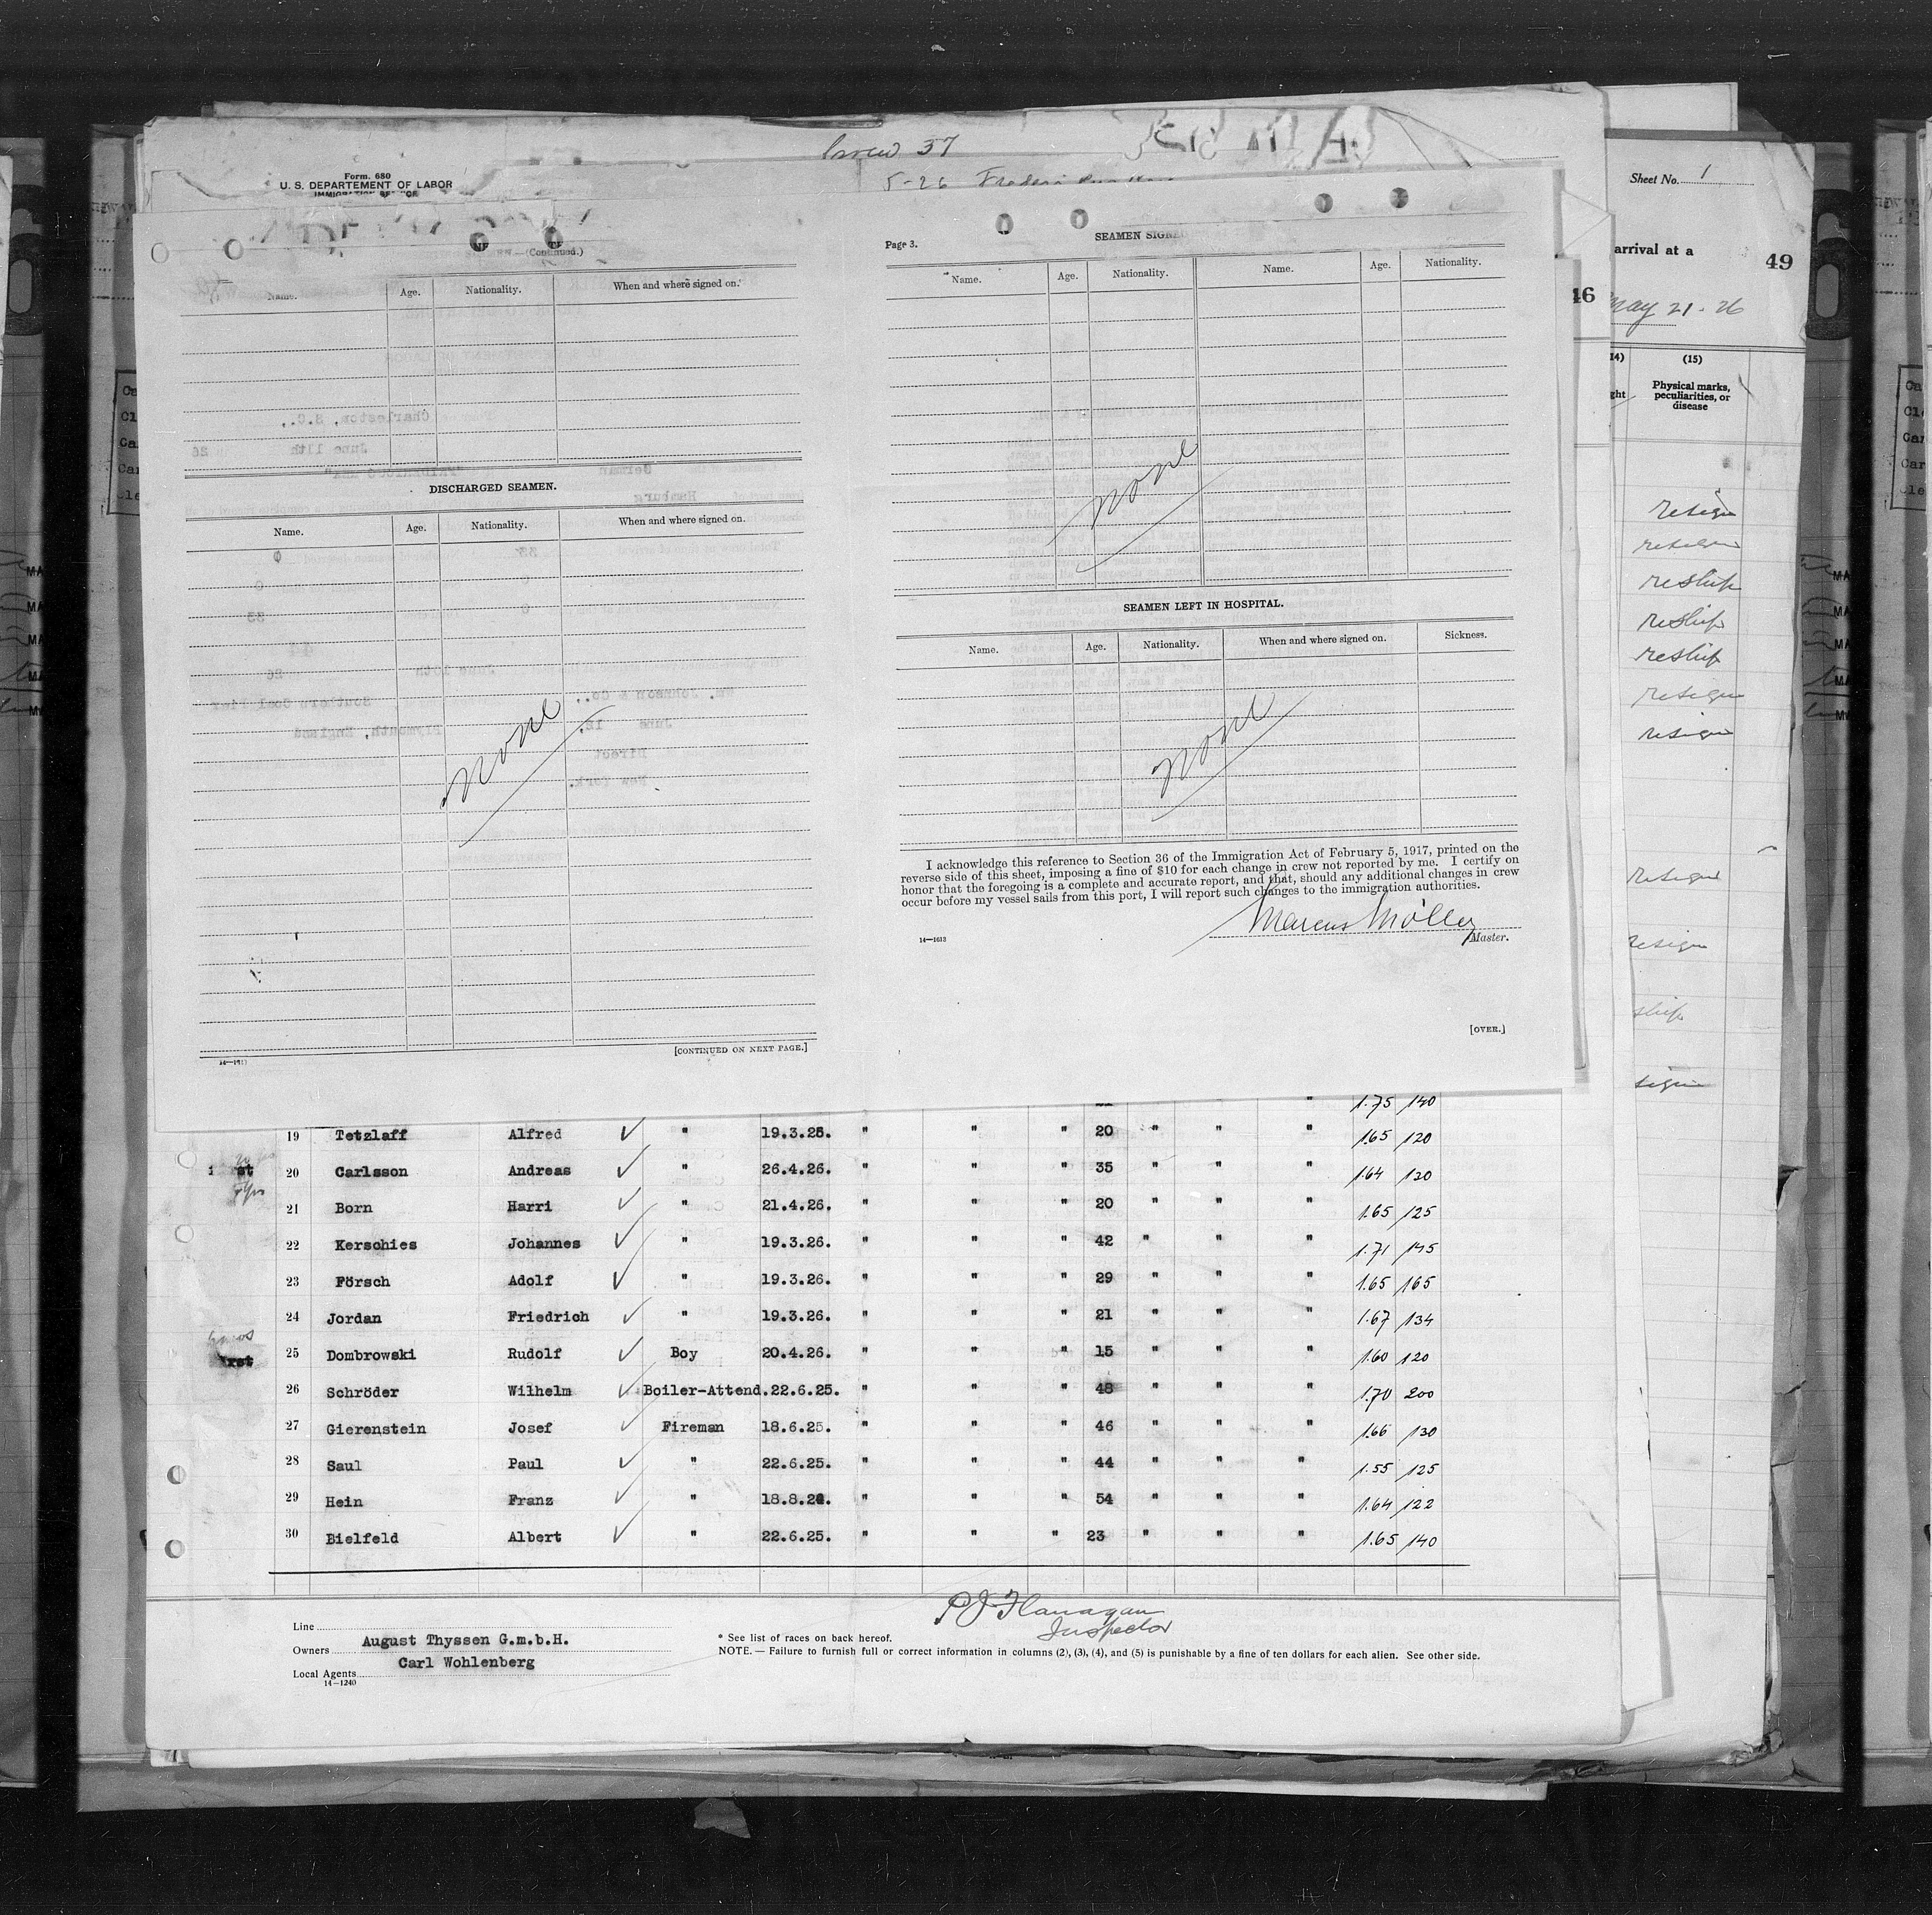 Crew 37
5-26
Form. 680
U. S. DEPARTEMENT OF LABOR
IMMIGRATION SERVICE
(Continued.)
Name. Age. Nationality. When and where signed on.
DISCHARGED SEAMEN.
Name. Age. Nationality. When and where signed on.
none
[CONTINUED ON NEXT PAGE.]
Page 3.
SEAMEN SIGNED
Name. Age. Nationality. Name. Age. Nationality.
none
SEAMEN LEFT IN HOSPITAL.
Name. Age. Nationality. When and where signed on. Sickness.
none
I acknowledge this reference to Section 36 of the Immigration Act of February 5, 1917, printed on the
reverse side of this sheet, imposing a fine of $10 for each change in crew not reported by me. I certify on
honor that the foregoing is a complete and accurate report, and that, should any additional changes in crew
occur before my vessel sails from this port, I will report such changes to the immigration authorities.
Marcus Möller
Master.
14—1613
[OVER.]
Sheet No. 1
arrival at a
49
46
May 21-26
14) (15)
ght Physical marks,
peculiarities, or
disease
resign
resign
reship
reship
reship
resign
resign
resign
resign
ship
sign
1.75 140
19 Tetzlaff Alfred ✓ " 19.3.26. " " " 20 " " " 1.65 120
20 Carlsson Andreas ✓ " 26.4.26. " " " 35 " " " 1.64 130
21 Born Harri ✓ " 21.4.26. " " " 20 " " " 1.65 125
22 Kerschies Johannes ✓ " 19.3.26. " " " 42 " " " 1.71 145
23 Försch Adolf ✓ " 19.3.26. " " " 29 " " " 1.65 165
24 Jordan Friedrich ✓ " 19.3.26. " " " 21 " " " 1.67 134
25 Dombrowski Rudolf ✓ Boy 20.4.26. " " " 15 " " " 1.60 120
26 Schröder Wilhelm ✓ Boiler-Attend. 22.6.25. " " " 48 " " " 1.70 200
27 Gierenstein Josef ✓ Fireman 18.6.25. " " " 46 " " " 1.66 130
28 Saul Paul ✓ " 22.6.25. " " " 44 " " " 1.55 125
29 Hein Franz ✓ " " " " 54 " " " 1.64 122
30 Bielfeld Albert ✓ " 22.6.25. " " " 23 " " " 1.65 140
Line
Owners August Thyssen G.m.b.H.
Local Agents Carl Wohlenberg
14—1240
P J Flanagan
Inspector
* See list of races on back hereof.
NOTE.— Failure to furnish full or correct information in columns (2), (3), (4), and (5) is punishable by a fine of ten dollars for each alien. See other side.